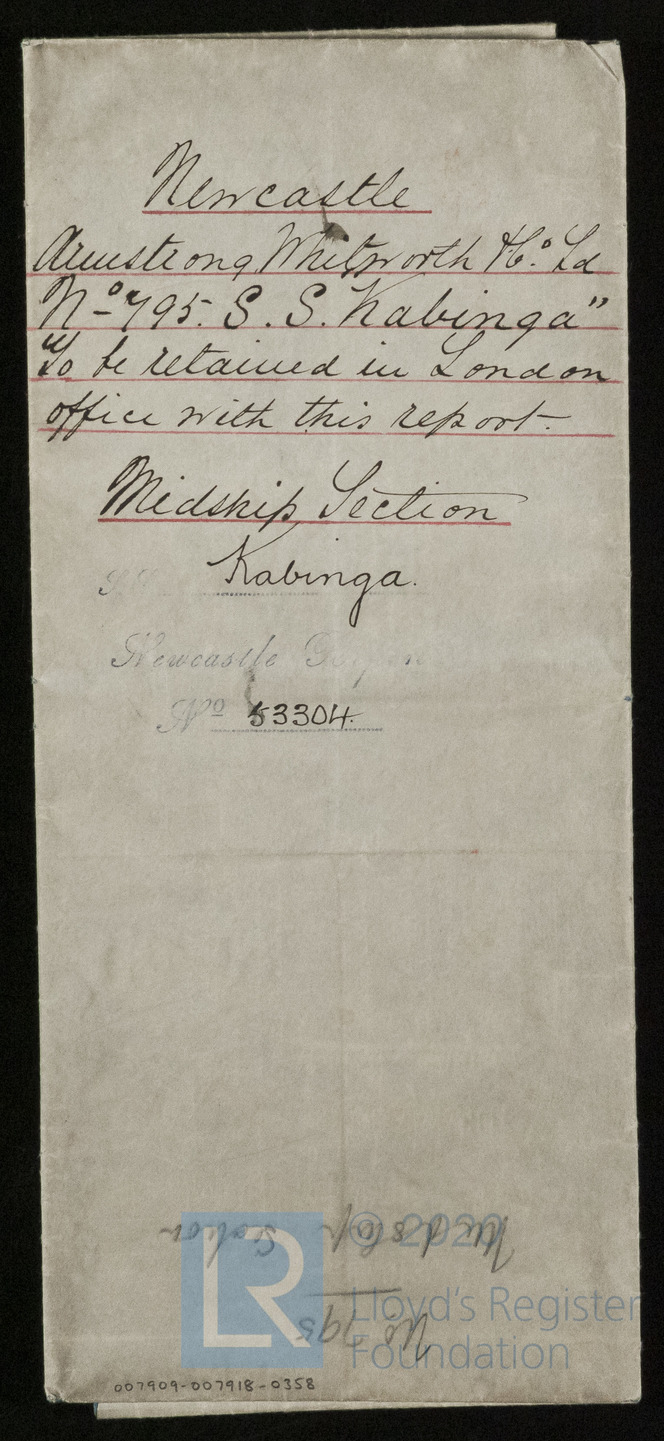 Newcastle
Armstrong Whitworth & Co. Ld
No 795. S. S. Kabinga"
To be retained in London
office with this report.
Midship Section
Kabinga.
Newcastle
No 53304.
Midship Section
No 795
LR
© 2020
Lloyd's Register
Foundation
007909-007918-0358